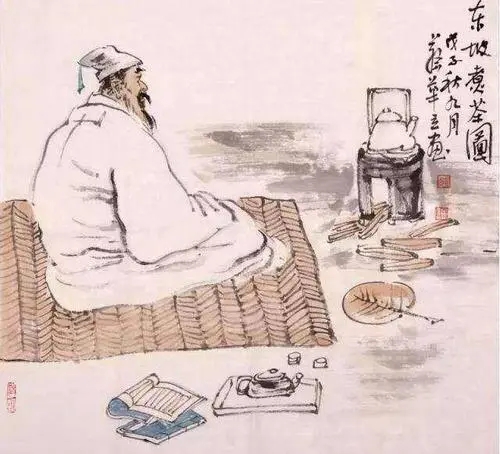 东坡煮茶圖
戊子秋九月
画